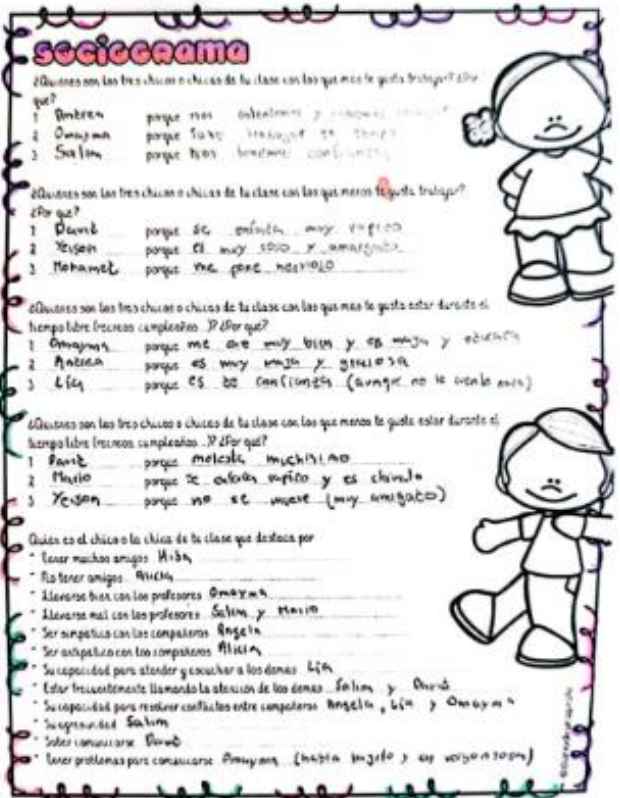 SOCIOGRAMA
¿Quienes son los tres chicos o chicas de tu clase con los que mas te gusta trabajar? ¿Por
que?
1 Andrea porque nos entendemos y
2 Omayma porque sabe trabajar en
3 Salim porque nos tenemos confianza
¿Quienes son los tres chicos o chicas de tu clase con los que menos te gusta trabajar?
¿Por que?
1 David porque se enfada muy rapido
2 Yeison porque es muy soso y amargado
3 Mohamet porque me pone nervioso
¿Quienes son los tres chicos o chicas de tu clase con los que mas te gusta estar durante el
tiempo libre (recreos cumpleaños...)? ¿Por que?
1 Omayma porque me cae muy bien y es maja y
2 Andrea porque es muy maja y graciosa
3 Lia porque es de confianza (aunque no le cuento nada)
¿Quienes son los tres chicos o chicas de tu clase con los que menos te gusta estar durante el
tiempo libre (recreos cumpleaños...)? ¿Por que?
1 David porque molesta muchisimo
2 Mario porque se enfada rapido y es chivato
3 Yeison porque no se mueve (muy amargado)
Quien es el chico o la chica de tu clase que destaca por
- Tener muchos amigos Hiba
- No tener amigos Alicia
- Llevarse bien con los profesores Omayma
- Llevarse mal con los profesores Salim y Mario
- Ser simpatico con los compañeros Angela
- Ser antipatico con los compañeros Alicia
- Su capacidad para atender y escuchar a los demas Lia
- Estar frecuentemente llamando la atencion de los demas Salim y David
- Su capacidad para resolver conflictos entre compañeros Angela, Lia y Omayma
- Su agresividad Salim
- Saber comunicarse David
- Tener problemas para comunicarse Omayma (habla bajito y es vergonzosa)